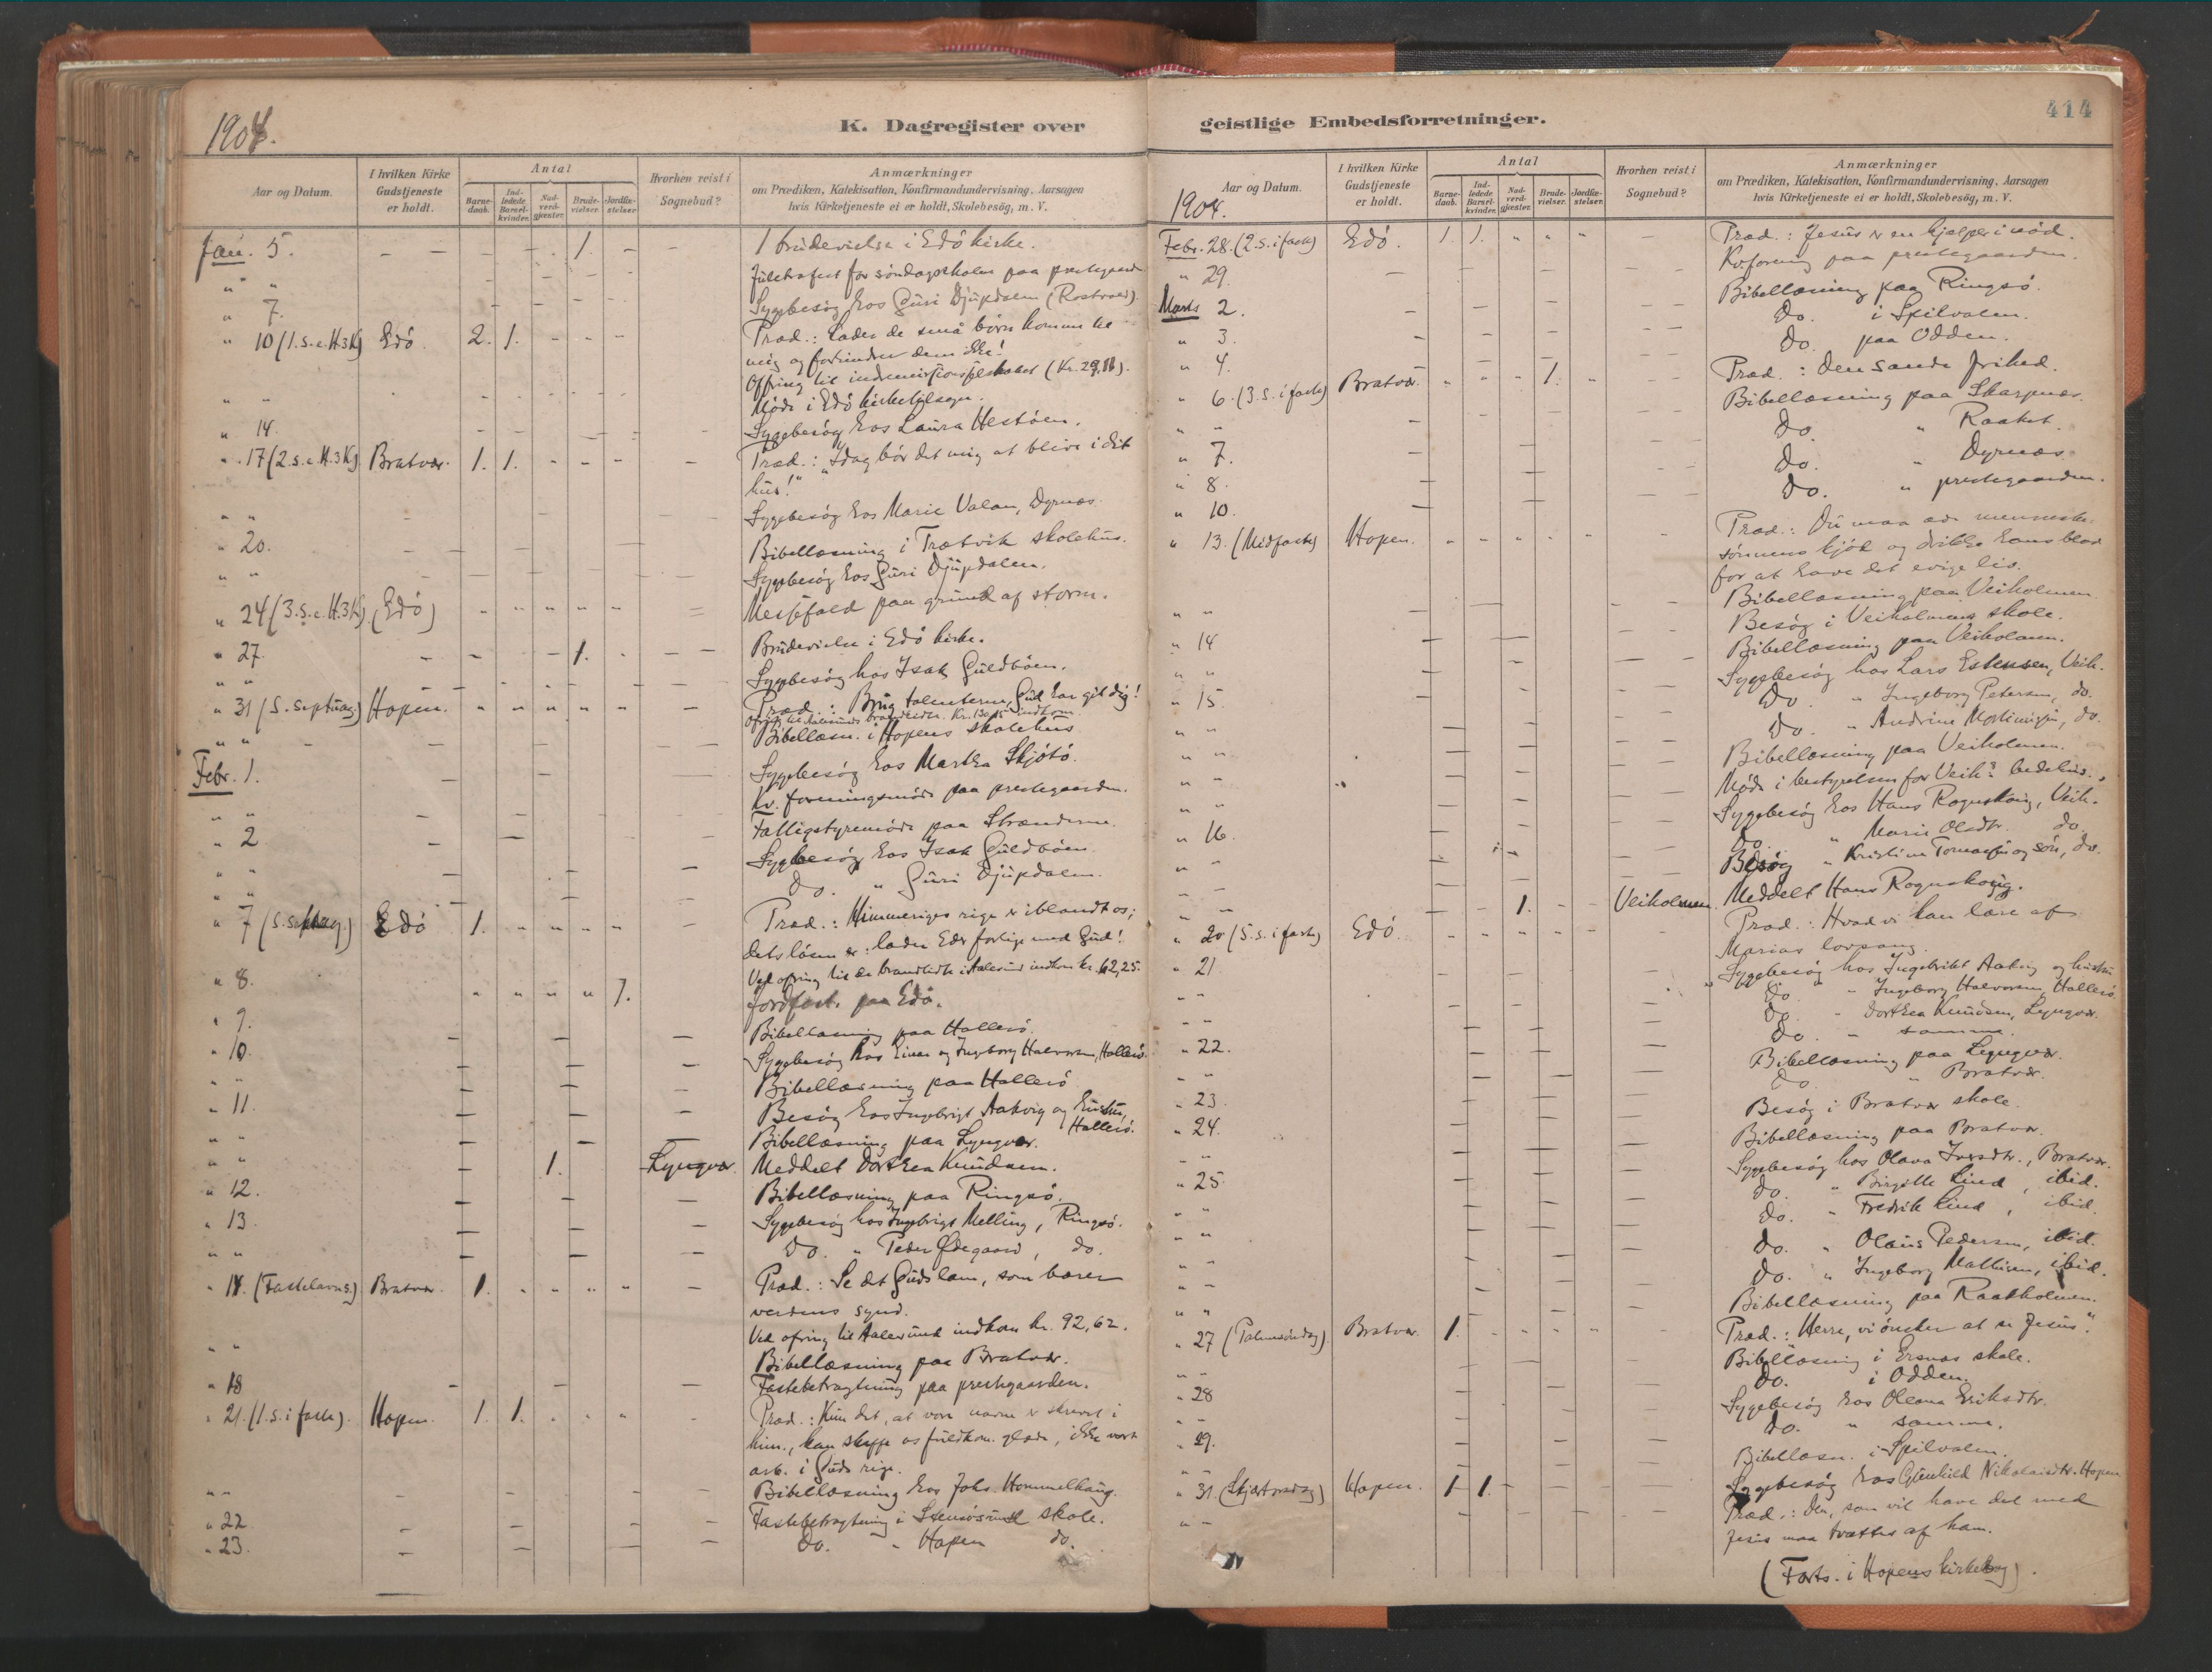 1904.
K. Dagregister over
Aar og Datum.
I hvilken Kirke Gudstjeneste er holdt.
Antal
Barnedaab.
Indledede Barselkvinder.
Nadverdgjester.
Brudevielser.
Jordfæstelser.
Hvorhen reist i Sognebud?
Anmærkninger
om Prædiken, Katekisation, Konfirmandundervisning, Aarsagen
hvis Kirketjeneste ei er holdt, Skolebesög, m. V.
Jan. 5. – – – – 1. – – 1 brudevielse i Edö kirke.
" " Juletræfest for söndagsskolen paa prestegaard
" 7. Sygebesög hos Guri Djupdalen (Rostvold).
" 10 (1. s. e. H.3K) Edö. 2. 1. Præd.: Lader de små börn komme til
mig og forhindrer dem ikke!
Ofring til indremissionsselskabet (Kr. 29,11).
" " Möde i Edö kirketilsyn.
" 14. Sygebesög hos Laura Hestöen.
" 17 (2. s. e. H.3K) Bratvær. 1. 1. Præd.: "Idag bör det mig at blive i dit
hus!"
" " Sygebesög hos Marie Valan, Dyrnæs.
" 20. Bibellæsning i Trætvik skolehus.
" " Sygebesög hos Guri Djupdalen.
" 24 (3. s. e. H.3K) (Edö) Messefald paa grund af storm.
" 27. 1. Brudevielse i Edö kirke.
" " Sygebesög hos Isak Guldböen.
" 31 (S. septuag) Hopen. Præd.: Brug talenterne, Gud har git dig!
" " Bibellæsn. i Hopens skolehus
Febr. 1. Sygebesög hos Martha Skjötö.
" " Kv. foreningsmöde paa prestegaarden.
" 2 Fattigstyremöde paa Stranderne.
" " Sygebesög hos Isak Guldböen
" " Do. " Guri Djupdalen.
" 7 (S. ) Edö 1. Præd.: Himmeriges rige er iblandt os;
dets lösen er: lader Eder forlige med Gud!
Ved ofring til de brandlidte i Aalesund indkom kr. 62,25.
" 8. 7. Jordfæst. paa Edö.
" 9. Bibellæsning paa Hallerö.
" 10. Sygebesög hos Einar og Ingeborg Halvorsen, Hallerö.
" " Bibellæsning paa Hallerö
" 11. Besög hos Ingebrigt Aakvig og hustru,
Hallerö.
" " Bibellæsning paa Lyngvær.
" " 1. Lyngvær. Meddelt Dorthea Knudsen.
" 12. Bibellæsning paa Ringsö.
" 13. Sygebesög hos Ingebrigt Melling, Ringsö.
" " Do. " Peder Ødegaard, do.
" 14. (Fastelavns.) Bratvær. 1. Præd.: Se det Guds lam, som bærer
verdens synd.
Ved ofring til Aalesund indkom kr. 92,62.
" " Bibellæsning paa Bratvær.
" 18 Fastebetragtning paa prestegaarden.
" 21. (1. s. i faste). Hopen. 1. 1. Præd.: Kun det, at vore navne er skrevet i
him., kan skjæppe os fuldkom. glæde, ikke vort
arb. i Guds rige.
" " Bibellæsning hos Johs. Hommelhaug.
" 22 Fastebetragtning i Stensösund skole.
" 23. Do. " Hopen do.
geistlige Embedsforretninger.
414
Aar og Datum.
I hvilken Kirke Gudstjeneste er holdt.
Antal
Barnedaab.
Indledede Barselkvinder.
Nadverdgjester.
Brudevielser.
Jordfæstelser.
Hvorhen reist i Sognebud?
Anmærkninger
om Prædiken, Katekisation, Konfirmandundervisning, Aarsagen
hvis Kirketjeneste ei er holdt, Skolebesög, m. V.
1904.
Febr. 28. (2. s. i faste) Edö. 1. 1. Præd.: Jesus er en hjælper i nöd.
" 29. Kv.forening paa prestegaarden.
Marts 2. Bibellæsning paa Ringsö.
" 3. Do. i Spilvalen.
" 4. Do. paa Odden.
" 6. (3. s. i faste) Bratvær. 1. Præd.: Den sande frihed.
" " Bibellæsning paa Skarpnæs.
" 7. Do. " Raaket.
" 8. Do. " Dyrnæs
" 10. Do. " prestegaarden.
" 13. (Midfaste) Hopen. Præd.: Du maa æde menneske-
sönnens kjöd og drikke hans blod
for at have det evige liv.
" " Bibellæsning paa Veiholmen
" 14 Besög i Veiholmens skole.
" " Bibellæsning paa Veiholmen.
" 15. Sygebesög hos Lars Estensen, Veih.
" " Do. " Ingeborg Petersen, do.
" " Do. " Andrine , do.
" " Bibellæsning paa Veiholmen.
" " Möde i bestyrelsen for Veih. bedehus.
" 16. Sygebesög hos Hans Rognskog, Veih.
" " Do. " Marie Olsdtr. do.
" " Besög " Kristine og sön, do.
" " 1. Veiholmen. Meddelt Hans Rognskog.
" 20 (5. s. i faste) Edö. Præd.: Hvad vi kan lære af
Marias lovsang.
" 21 Sygebesög hos Ingebrikt Aakvig og hustru
" " Do. " Ingeborg Halvorsen, Hallerö
" " Do. " Dorthea Knudsen, Lyngvær.
" 22. Do. " samme.
" " Bibellæsning paa Lyngvær.
" 23 Do. " Bratvær.
" 24. Besög i Bratvær skole.
" " Bibellæsning paa Bratvær.
" 25. Sygebesög hos Olava Iversdtr., Bratvær.
" " Do. " Birgitte Lind, ibid.
" " Do. " Fredrik Lind, ibid.
" " Do. " Olaus Pedersen, ibid.
" " Do. " Ingeborg Mathisen, ibid.
" " Bibellæsning paa Raakholmen.
" 27 (Palmesöndag) Bratvær. 1. Præd.: Herre, vi önsker at se Jesus".
" " Bibellæsning i Ersnæs skole.
" 28 Do. i Odden.
" " Sygebesög hos Oleana Eriksdtr.
" 29. Do. " samme.
" " Bibellæsn. i Spilvalen.
" " Sygebesög hos Gunhild Nikolaisdtr. Hopen
" 31. (Skjærtorsdag) Hopen. 1 1. Præd.: Den, som vil have del med
Jesus maa tvættes af ham.
(Forts. i Hopens kirkebog).